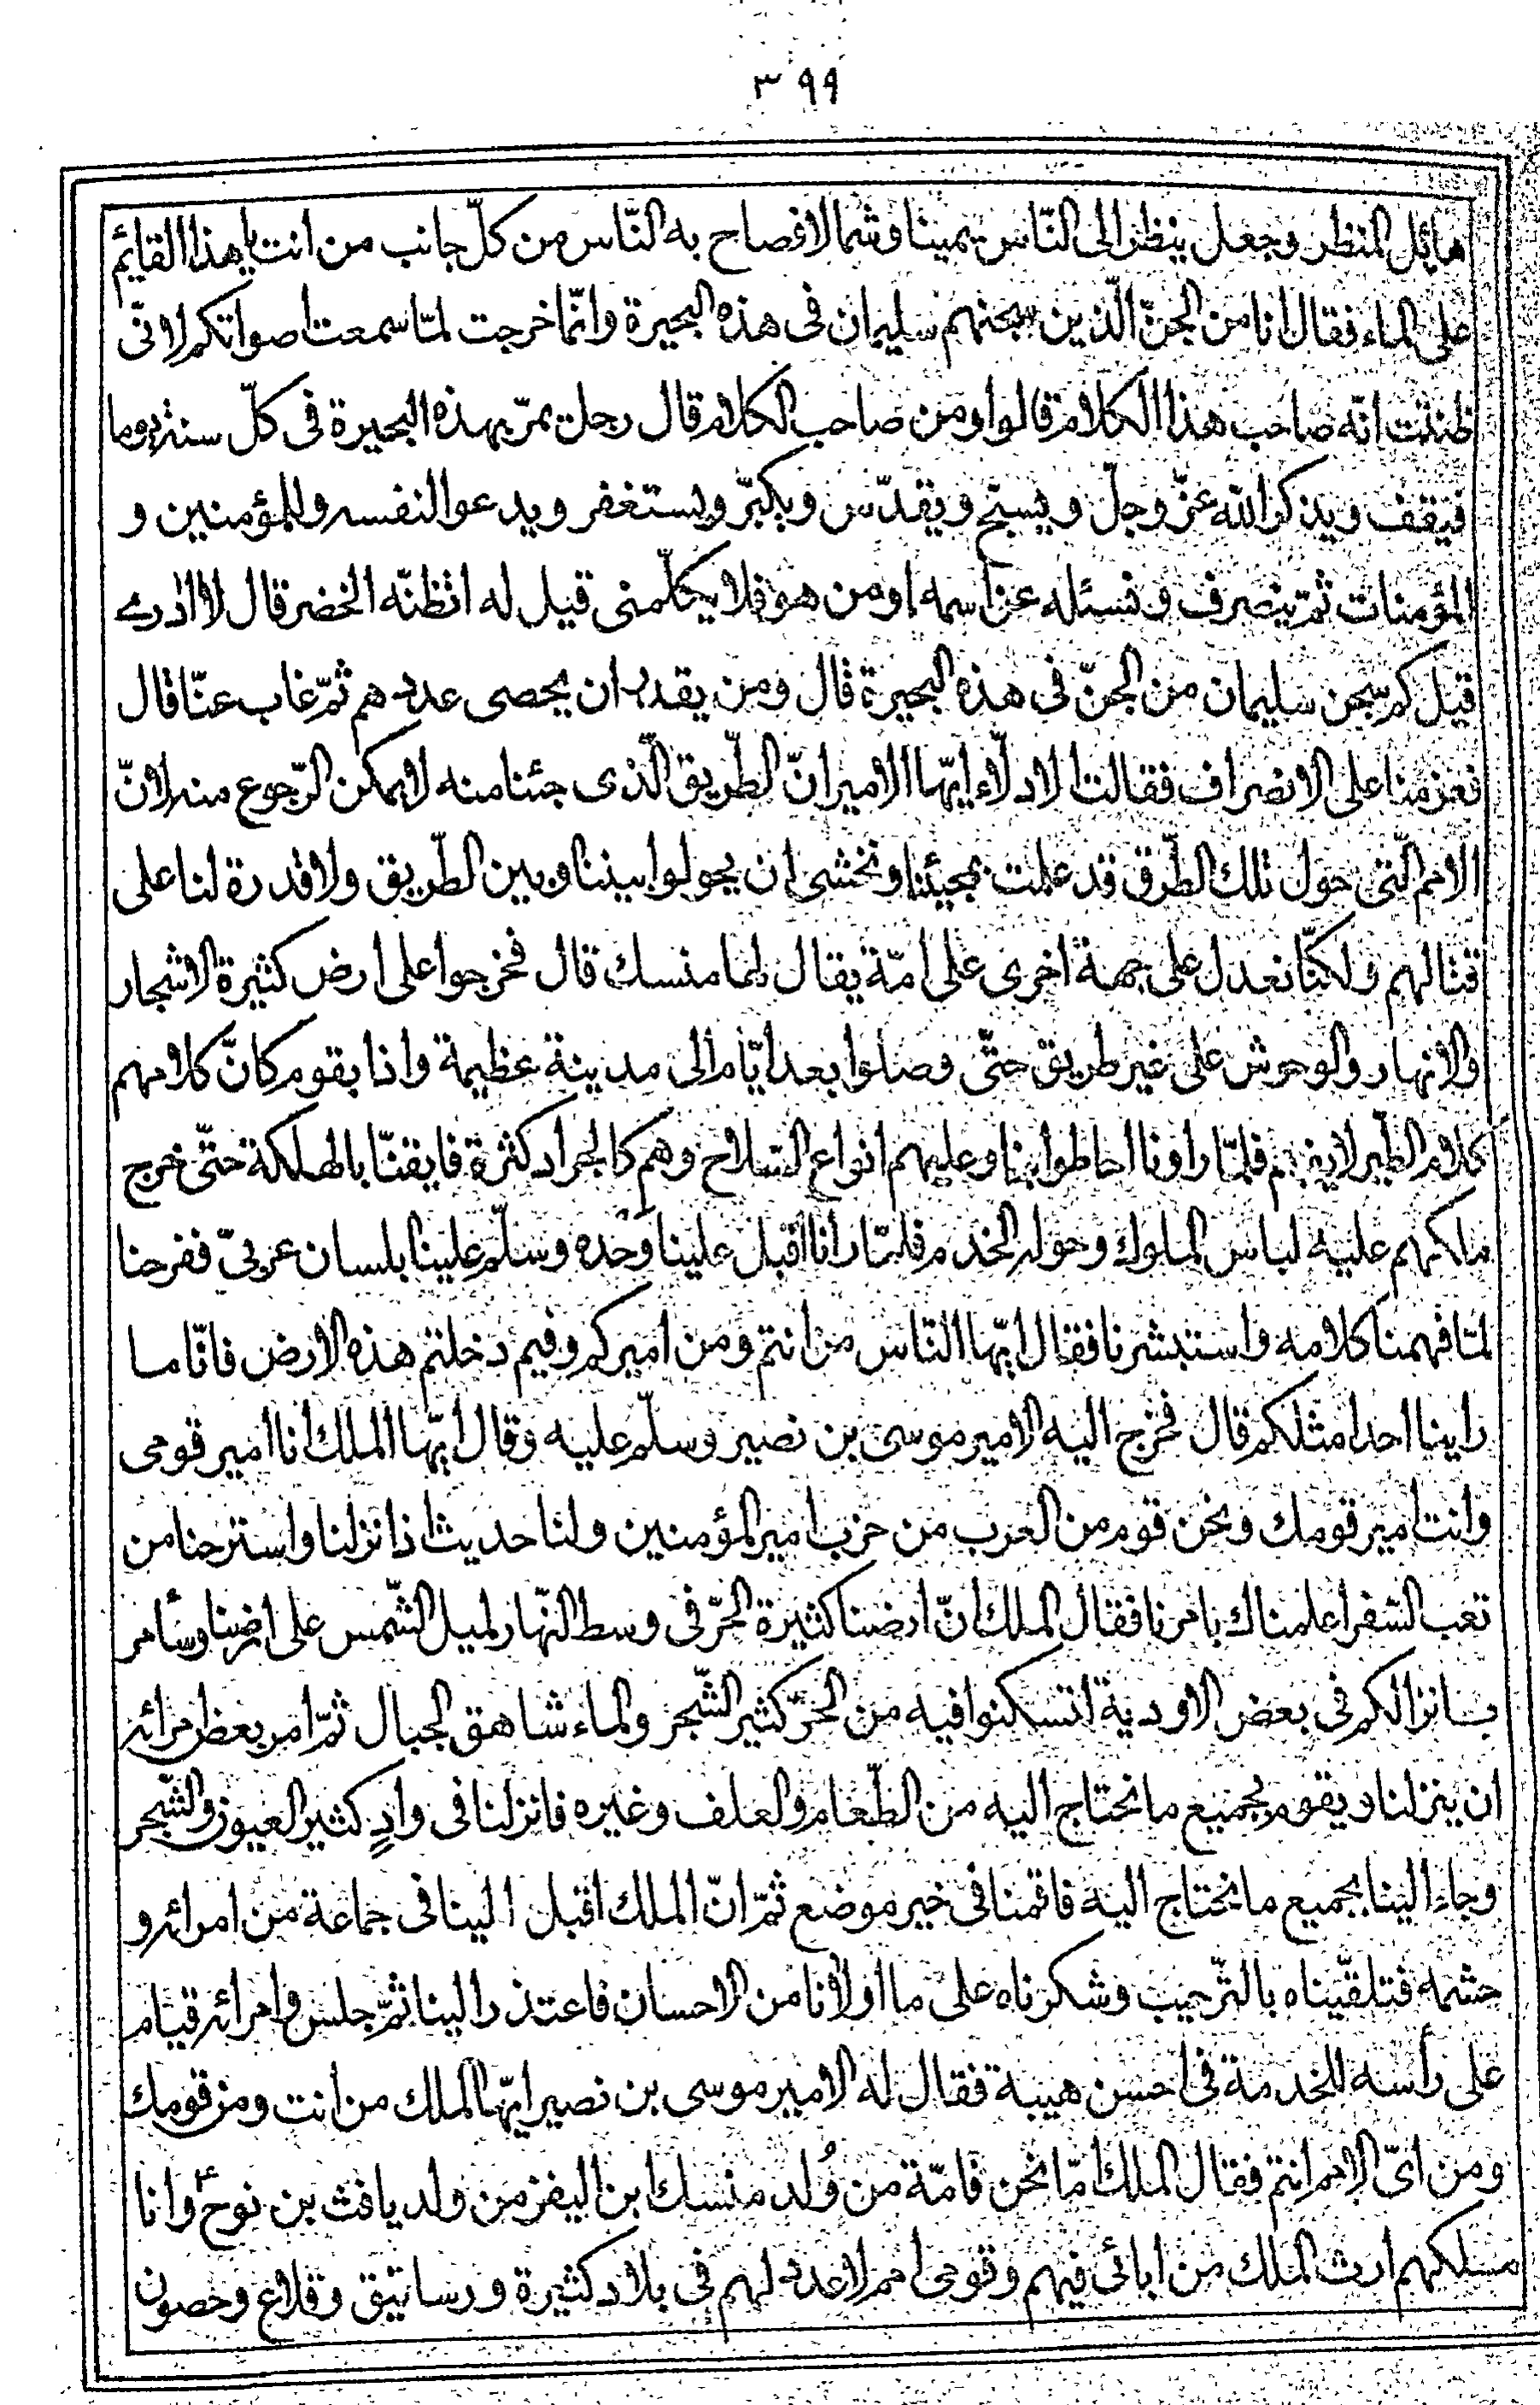 ٣٩٩
هائل المنظر وجعل ينظر الى النّاس يمينا وشمالا فصاح به النّاس من كلّ جانب من انت يا هذا القايم
على الماء فقال انا من الجنّ الّذين سجنهم سليمان فى هذه البحيرة وانّما خرجت لمّا سمعت اصواتكم لانّى
ظننت انّه صاحب هذا الكلام قالوا ومن صاحب الكلام قال رجل يمرّ بهذه البحيرة فى كلّ سنة يوما
فيقف ويذكر الله عزّ وجلّ ويسبّح ويقدّس ويكبّر ويستغفر ويدعو لنفسه وللمؤمنين و
المؤمنات ثمّ ينصرف ونسئله عن اسمه او من هو فلا يكلّمنى قيل له اتظنّه الخضر قال لا ادرى
قيل كم سجن سليمان من الجنّ فى هذه البحيرة قال ومن يقدر ان يحصى عددهم ثمّ غاب عنّا قال
فعزمنا على الانصراف فقالت الادلّاء ايّها الامير انّ الطّريق الّذى جئنا منه لا يمكن الرّجوع منه لانّ
الامم الّتى حول تلك الطّرق قد علمت بمجيئنا ونخشى ان يحولوا بيننا وبين الطّريق ولا قدرة لنا على
قتالهم ولكنّا نعدل على جهة اخرى على امّة يقال لها منسك قال فخرجوا على ارض كثيرة الاشجار
والانهار والوحوش على غير طريق حتّى وصلوا بعد ايّام الى مدينة عظيمة واذا بقوم كانّ كلامهم
كلام الطّير لا يفهم فلمّا راونا احاطوا بنا وعليهم انواع السّلاح وهم كالجراد كثرة فايقنّا بالهلكة حتّى خرج
ملكهم عليه لباس الملوك وحوله الخدم فلمّا رانا اقبل علينا وحده وسلّم علينا بلسان عربىّ ففرحنا
لمّا فهمنا كلامه واستبشرنا فقال ايّها النّاس من انتم ومن اميركم وفيم دخلتم هذه الارض فانّا ما
راينا احدا مثلكم قال فخرج اليه الامير موسى بن نصير وسلّم عليه وقال ايّها الملك انا امير قومى
وانت امير قومك ونحن قوم من العرب من حزب امير المؤمنين ولنا حديث اذا نزلنا واسترحنا من
تعب السّفر اعلمناك بامرنا فقال الملك انّ ارضنا كثيرة الحرّ فى وسط النّهار لميل الشّمس على ارضنا وسأمر
بانزالكم فى بعض الاودية لتسكنوا فيه من الحرّ كثير الشّجر والماء شاهق الجبال ثمّ امر بعض امرائه
ان ينزلنا ويقوم بجميع ما نحتاج اليه من الطّعام والعلف وغيره فانزلنا فى وادٍ كثير العيون والشّجر
وجاء الينا بجميع ما نحتاج اليه فاقمنا فى خير موضع ثمّ انّ الملك اقبل الينا فى جماعة من امرائه و
حشمه فتلقّيناه بالتّرحيب وشكرناه على ما اولانا من الاحسان فاعتذر الينا ثمّ جلس وامرائه قيام
على رأسه للخدمة فى احسن هيبة فقال له الامير موسى بن نصير ايّها الملك من انت ومن قومك
ومن اىّ الامم انتم فقال الملك امّا نحن فامّة من وُلد منسك ابن اليفز من ولد يافث بن نوحؑ وانا
مسلكهم ارث الملك من ابائى فيهم وقومى امم لا عدد لهم فى بلاد كثيرة ورساتيق وقلاع وحصون